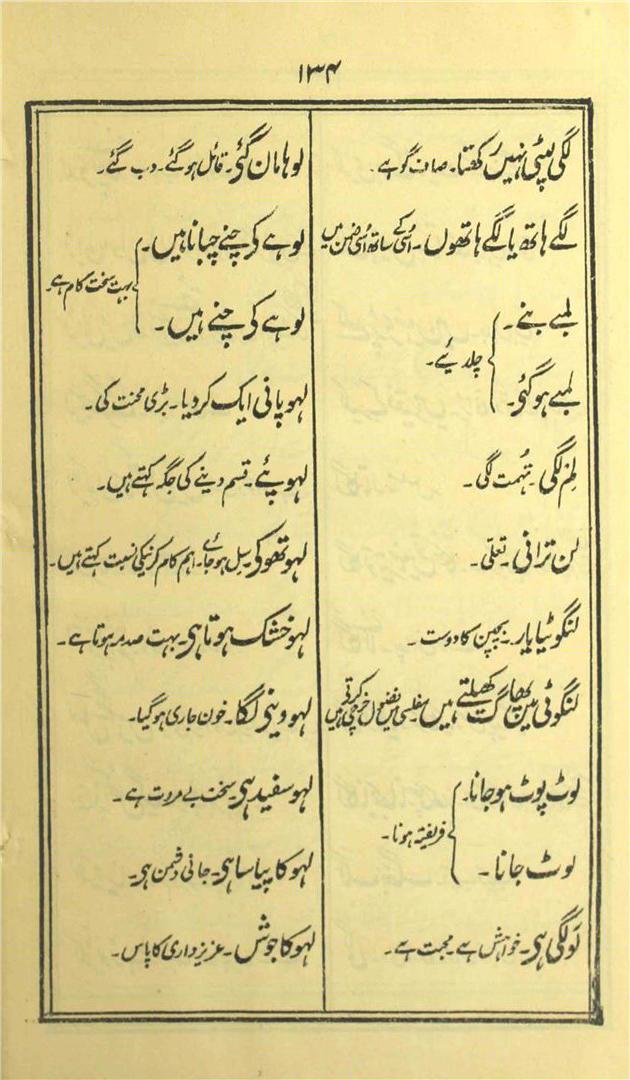 ۱۳۴
لگی لپٹی نہیں رکھتا۔ صاف گو ہے۔
لگے ہاتھ یا لگے ہاتھوں۔ اُسی کے ساتھ اُسی ضمن میں
لمبے بنے۔
لمبے ہو گئی۔
چلدیئے۔
لِم لگی۔ تہمت لگی۔
لن ترانی۔ تعلی۔
لنگوٹیا یار۔ بچپن کا دوست۔
لنگوٹی میں پھاگ کھیلتے ہیں مفلسی میں فضول خرچی کرتی ہیں
لوٹ پوٹ ہو جانا۔
لوٹ جانا۔
فریفتہ ہونا۔
لَو لگی ہی۔ خواہش ہے۔ محبت ہے۔
لوہا مان گئی۔ قائل ہو گئے۔ دب گئے۔
لوہے کے چنے چبانا ہیں۔
لوہے کے چنے ہیں۔
بہت سخت کام ہے۔
لہو پانی ایک کر دیا۔ بڑی محنت کی۔
لہو پئے۔ قسم دینے کی جگہ کہتے ہیں۔
لہو تھوک۔ سِل ہو جائے۔ اہم کام کرنیکی نسبت کہتے ہیں۔
لہو خشک ہوتا ہی۔ بہت صدمہ ہوتا ہے۔
لہو دینی لگا۔ خون جاری ہو گیا۔
لہو سفید ہی۔ سخت بے مروت ہے۔
لہو کا پیاسا ہی۔ جانی دشمن ہی۔
لہو کا جوش۔ عزیزداری کا پاس۔